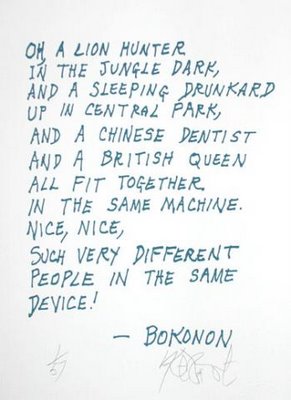 OH, A LION HUNTER
IN THE JUNGLE DARK,
AND A SLEEPING DRUNKARD
UP IN CENTRAL PARK,
AND A CHINESE DENTIST
AND A BRITISH QUEEN
ALL FIT TOGETHER
IN THE SAME MACHINE.
NICE, NICE,
SUCH VERY DIFFERENT
PEOPLE IN THE SAME
DEVICE!
— BOKONON